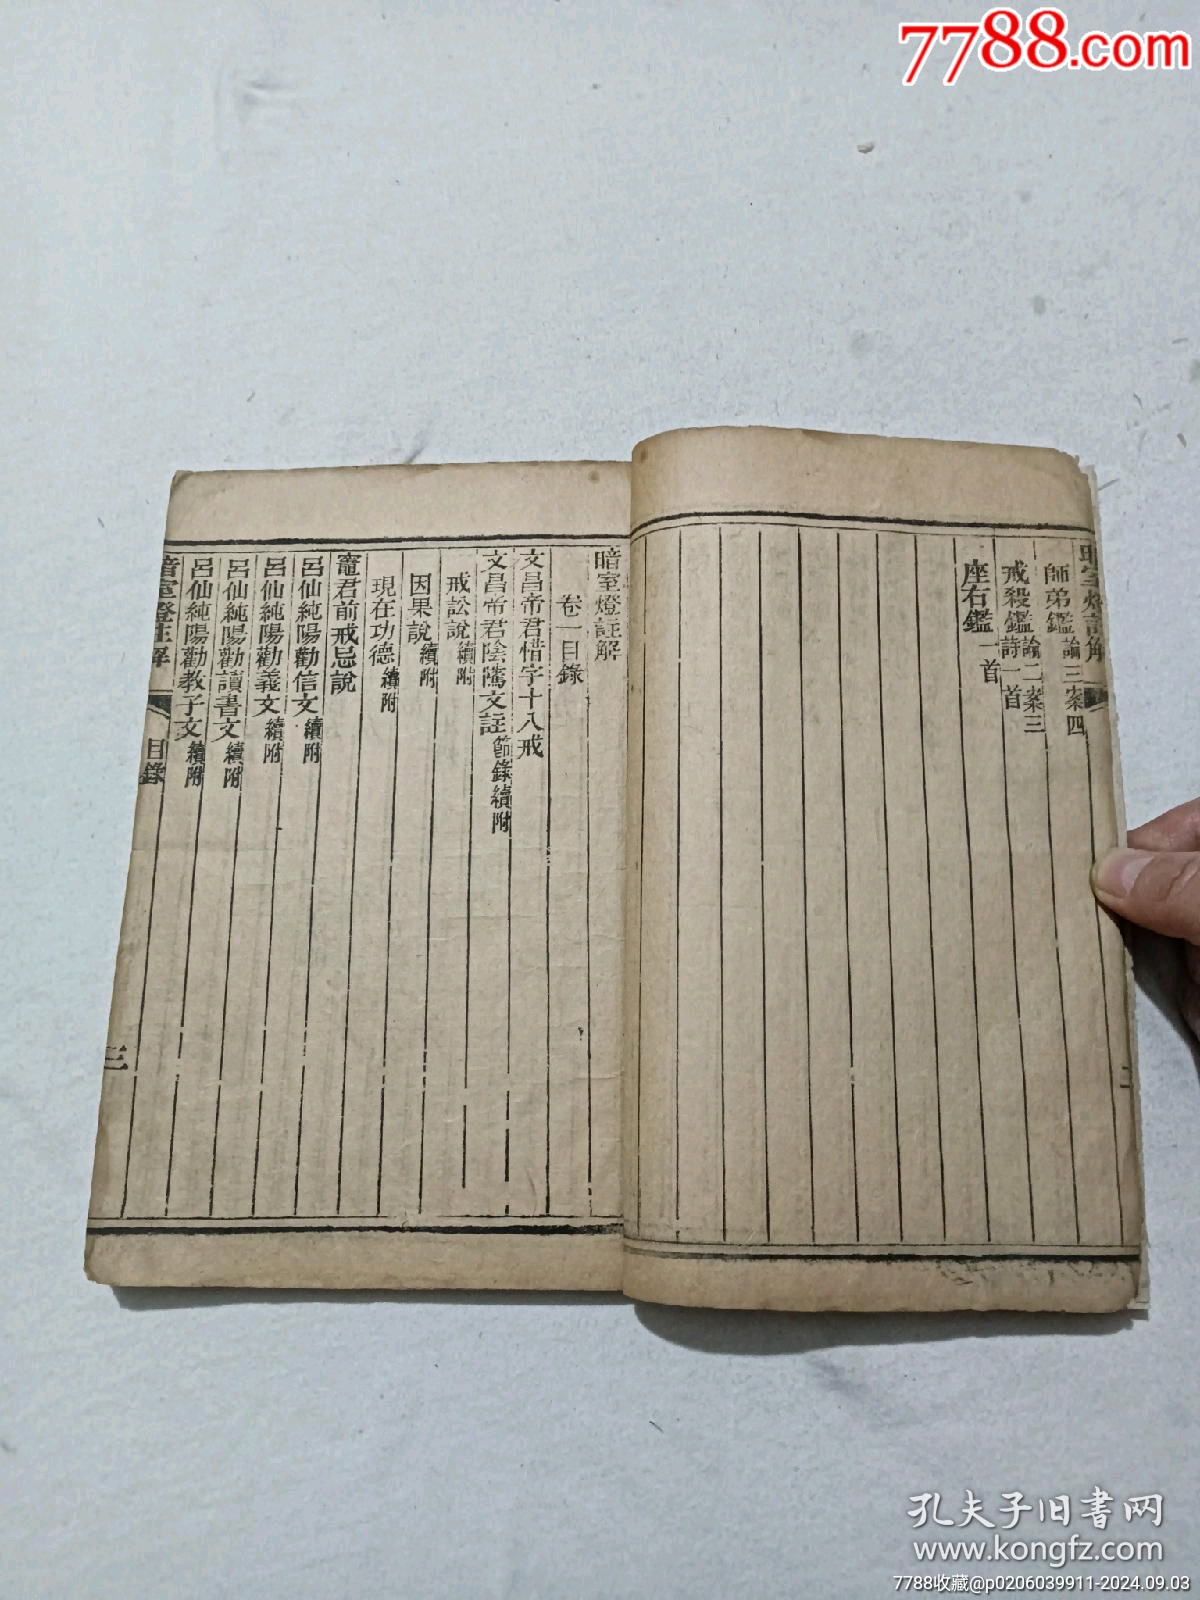 7788.com
暗室燈註解
師弟鑑論三案四
戒殺鑑論二案三詩一首
座右鑑一首
二
暗室燈註解
卷一目錄
文昌帝君惜字十八戒
文昌帝君陰騭文註節錄續附
戒訟說續附
因果說續附
現在功德續附
竈君前戒忌說
呂仙純陽勸信文續附
呂仙純陽勸義文續附
呂仙純陽勸讀書文續附
呂仙純陽勸教子文續附
暗室燈註解 目錄 三
孔夫子旧书网
www.kongfz.com
7788收藏@p0206039911-2024.09.03